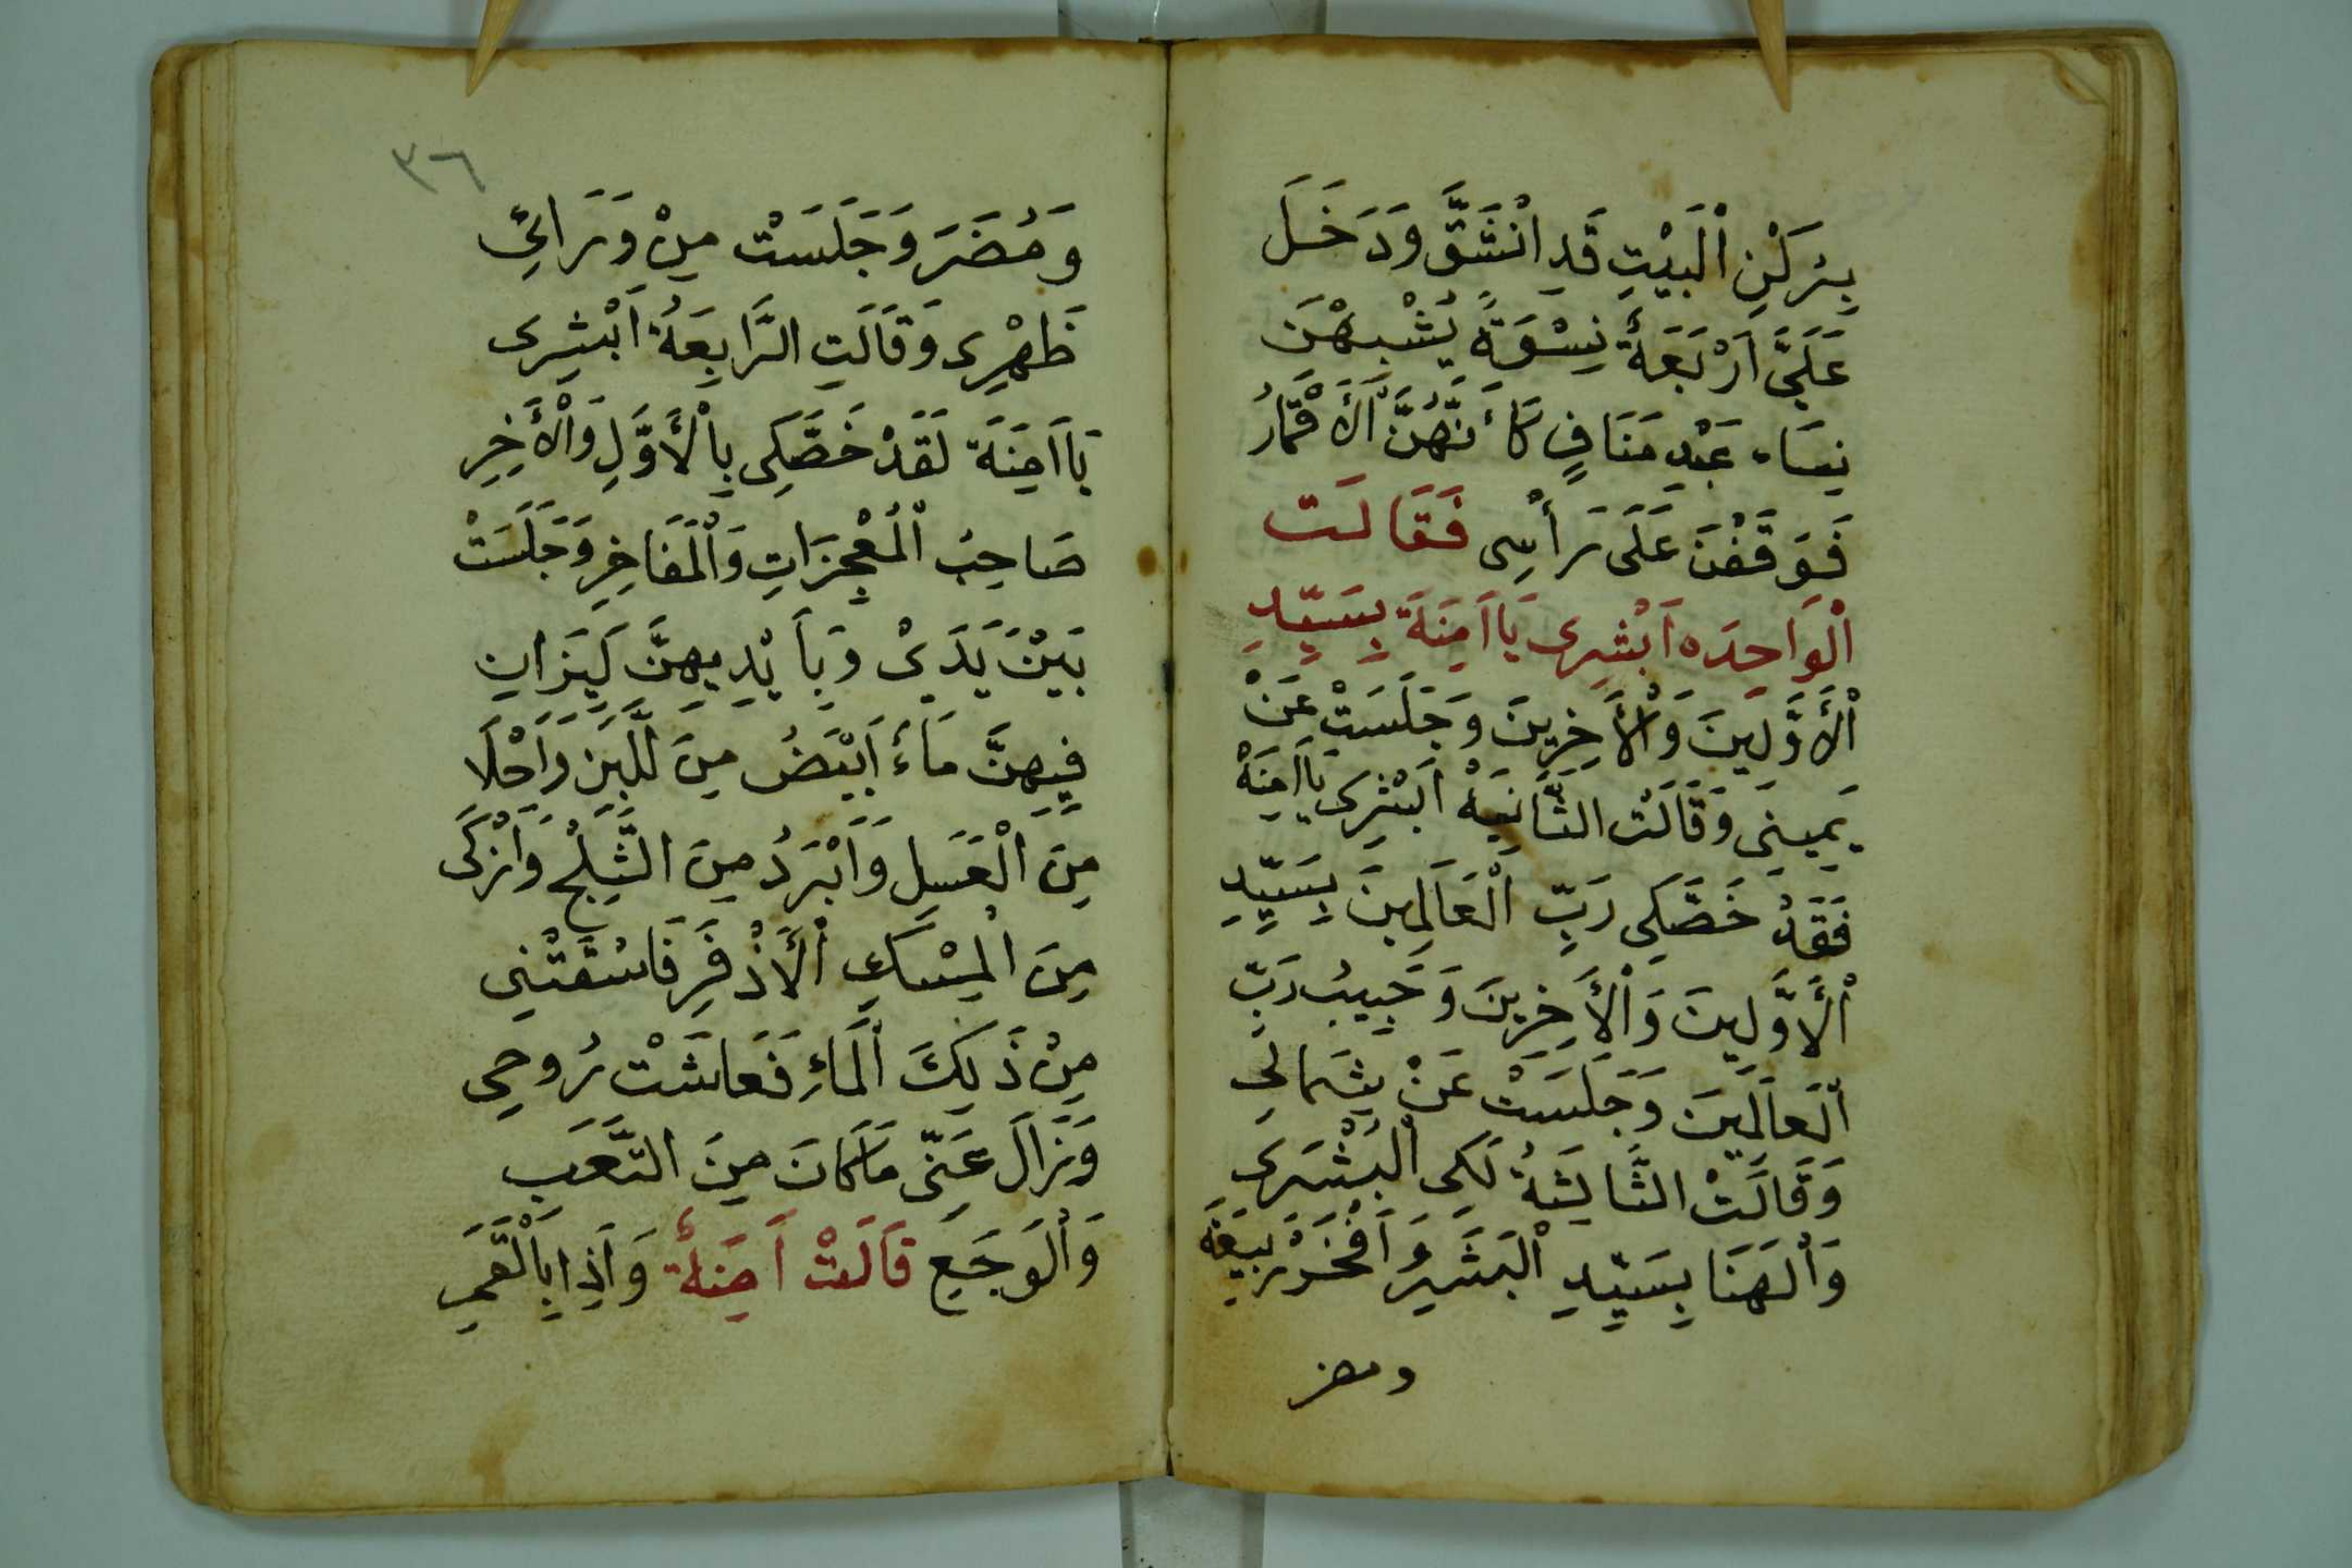 بِرُكْنِ الْبَيْتِ قَدِ انْشَقَّ وَدَخَلَ
عَلَيَّ اَرْبَعَةُ نِسْوَةً يُشْبِهْنَ
نِسَاء عَبْدِ مَنَافٍ كَاَنَّهُنَّ الْأَقْمَارُ
فَوَقَفْنَ عَلَى رَأْسِى فَقَالَت
الْوَاحِدَه اَبْشِرِى يَا اَمِنَةَ بِسَيِّدِ
الْأَوَّلِينَ وَالْأَخِرِينَ وَجَلَسَتْ عَنْ
يَمِينِى وَقَالَتْ الثَّانِيَةْ اَبْشِرِى يَا اَمِنَةْ
فَقَدْ خَصَّكِى رَبِّ الْعَالَمِينَ بِسَيِّدِ
الْأَوَّلِينَ وَالْأَخِرِينَ وَحَبِيبُ رَبِّ
الْعَالَمِينَ وَجَلَسَتْ عَنْ شِمَالِى
وَقَالَتْ الثَّالِثَةُ لَكِى الْبُشْرَى
وَالْهَنَا بِسَيِّدِ الْبَشَرِ وَاَفْخَرْ رَبِيعَةَ
ومضر
٣٦
وَمُضَرَ وَجَلَسَتْ مِنْ وَرَائِى
ظَهْرِى وَقَالَتِ الرَّابِعَةُ اَبْشِرِى
يَا اَمِنَةَ لَقَدْ خَصَّكِى بِالْأَوَّلِ وَالْأَخِرِ
صَاحِبُ الْمُعْجِزَاتِ وَالْمَفَاخِرِ وَجَلَسَتْ
بَيْنَ يَدَىْ وَبِأَيْدِيهِنَّ كِيزَانِ
فِيهِنَّ مَاءَ اَبْيَضُ مِنَ اللَّبَنِ وَاَحْلَا
مِنَ الْعَسَلِ وَاَبْرَدُ مِنَ الثَّلِجْ وَاَزْكَى
مِنَ الْمِسْكِ الْأَذْفَرِ فَاسْقَتْنِى
مِنْ ذَلِكَ الْمَاءِ فَعَاشَتْ رُوحِى
وَزَالَ عَنِّى مَا كَانَ مِنَ التَّعَبِ
وَالْوَجَعِ قَالَتْ اَمِنَةُ وَاَذِا بِالْقَمَرِ